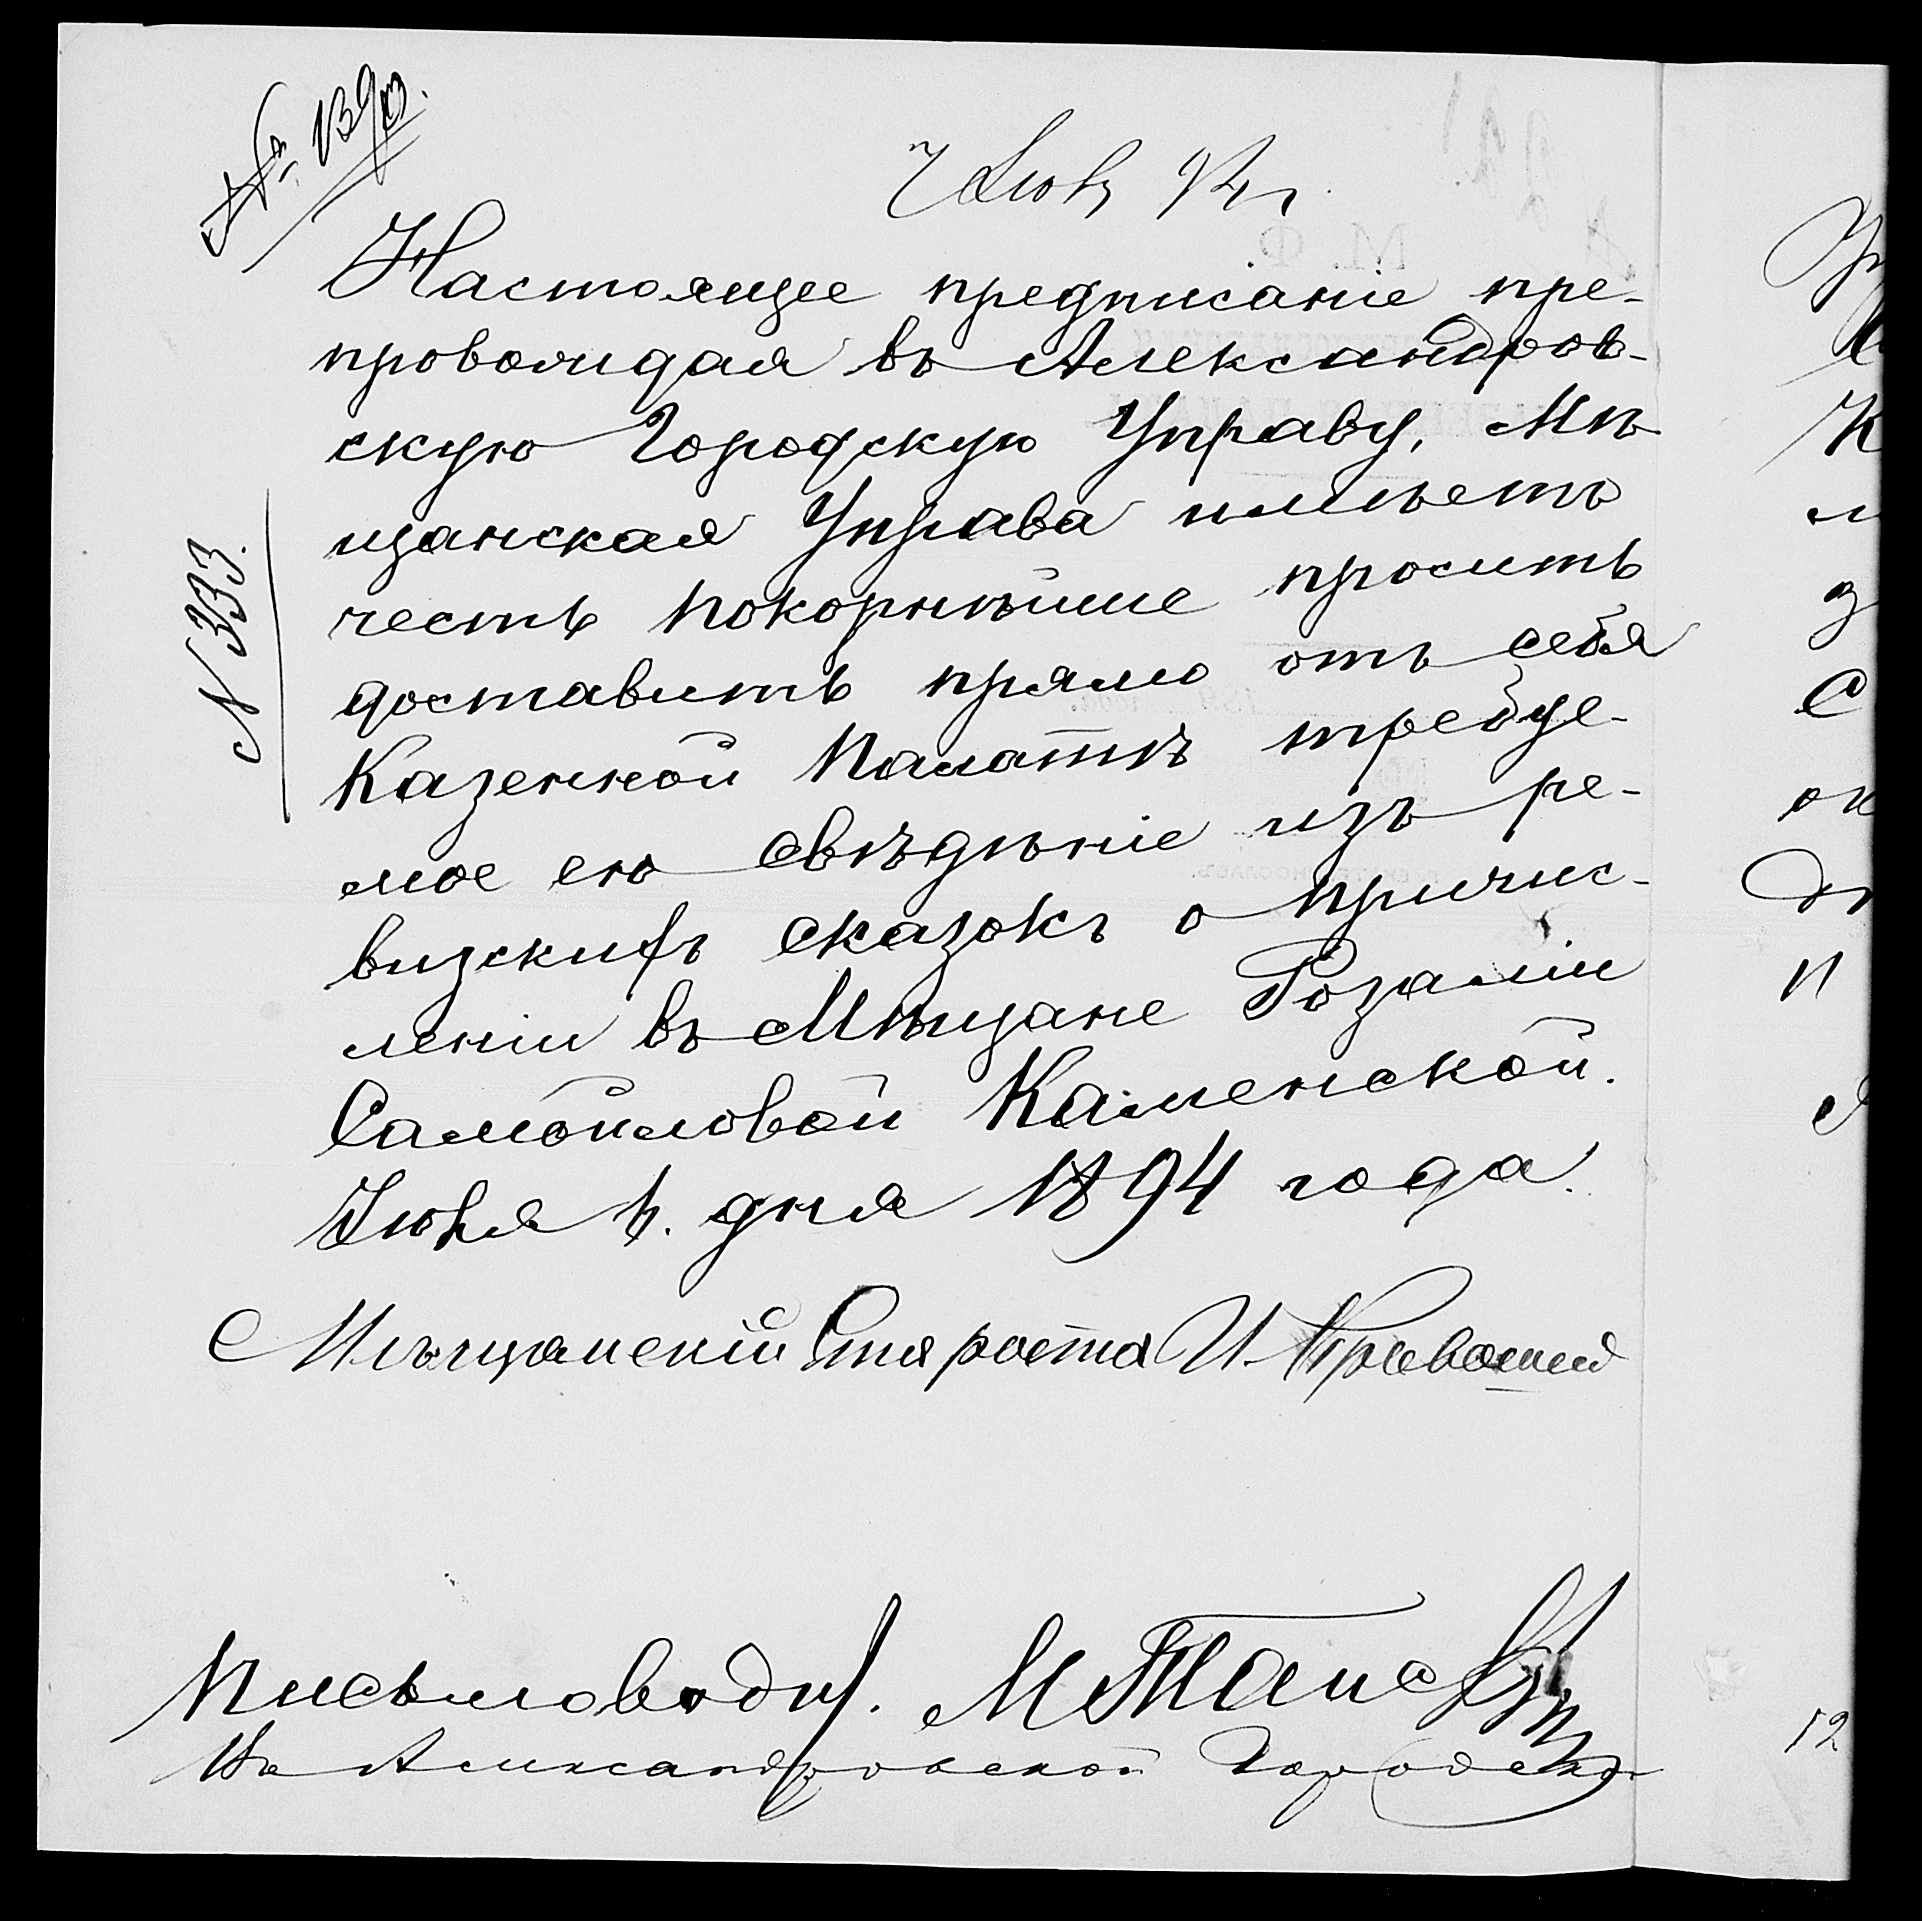 № 1390.
7 Іюня 94 г.
Настоящее предписаніе пре-
провождая въ Александров-
скую Городскую Управу, Мѣ-
щанская Управа имѣетъ
честь покорнѣйше просить
доставить прямо отъ себя
Казенной Палатѣ требуе-
мое ею свѣдѣніе изъ ре-
визскихъ сказокъ о причис-
леніи въ Мѣщане Розаліи
Самойловой Каменской.
Іюня 6. дня 1894 года.
N 333.
Мѣщанскій Староста И
Письмоводи. М
Въ Александровской Городской
12